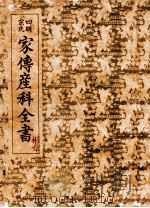 四明
宋氏
家傳產科全書